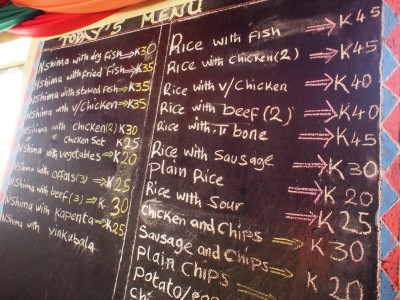 TODAY'S MENU
Nshima with dry fish → K30
Nshima with fried fish → K35
Nshima with stewed fish → K35
Nshima with v/chicken → K35
Nshima with chicken(2) K30
Chicken Set K25
Nshima with vegetables → K20
Nshima with offals(3) → K25
Nshima with beef(3) → K30
Nshima with Kapenta → K25
Nshima with vinkubala
Rice with fish → K45
Rice with chicken(2) → K45
Rice with v/chicken → K40
Rice with beef(2) → K40
Rice with T bone → K45
Rice with Sausage → K30
Plain Rice → K20
Rice with Sour → K25
Chicken and Chips → K30
Sausage and Chips → K20
Plain Chips →
Potato/